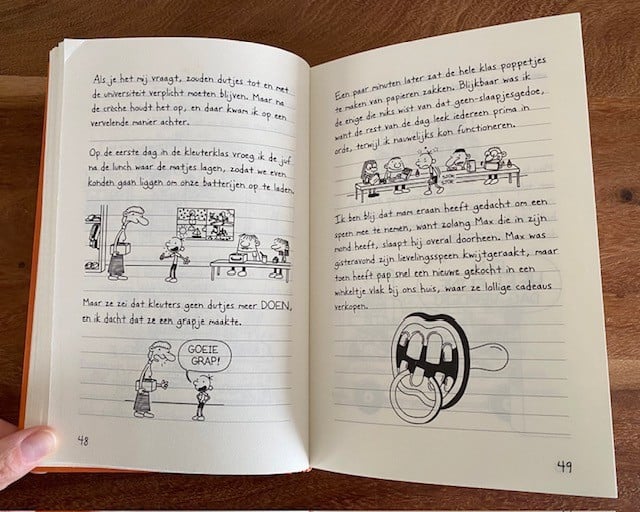 Als je het mij vraagt, zouden dutjes tot en met
de universiteit verplicht moeten blijven. Maar na
de crèche houdt het op, en daar kwam ik op een
vervelende manier achter.
Op de eerste dag in de kleuterklas vroeg ik de juf
na de lunch waar de matjes lagen, zodat we even
konden gaan liggen om onze batterijen op te laden.
Maar ze zei dat kleuters geen dutjes meer DOEN,
en ik dacht dat ze een grapje maakte.
GOEIE
GRAP!
48
Een paar minuten later zat de hele klas poppetjes
te maken van papieren zakken. Blijkbaar was ik
de enige die niks wist van dat geen-slaapjesgedoe,
want de rest van de dag leek iedereen prima in
orde, terwijl ik nauwelijks kon functioneren.
Ik ben blij dat mam eraan heeft gedacht om een
speen mee te nemen, want zolang Max die in zijn
mond heeft, slaapt hij overal doorheen. Max was
gisteravond zijn lievelingsspeen kwijtgeraakt, maar
toen heeft pap snel een nieuwe gekocht in een
winkeltje vlak bij ons huis, waar ze lollige cadeaus
verkopen.
49